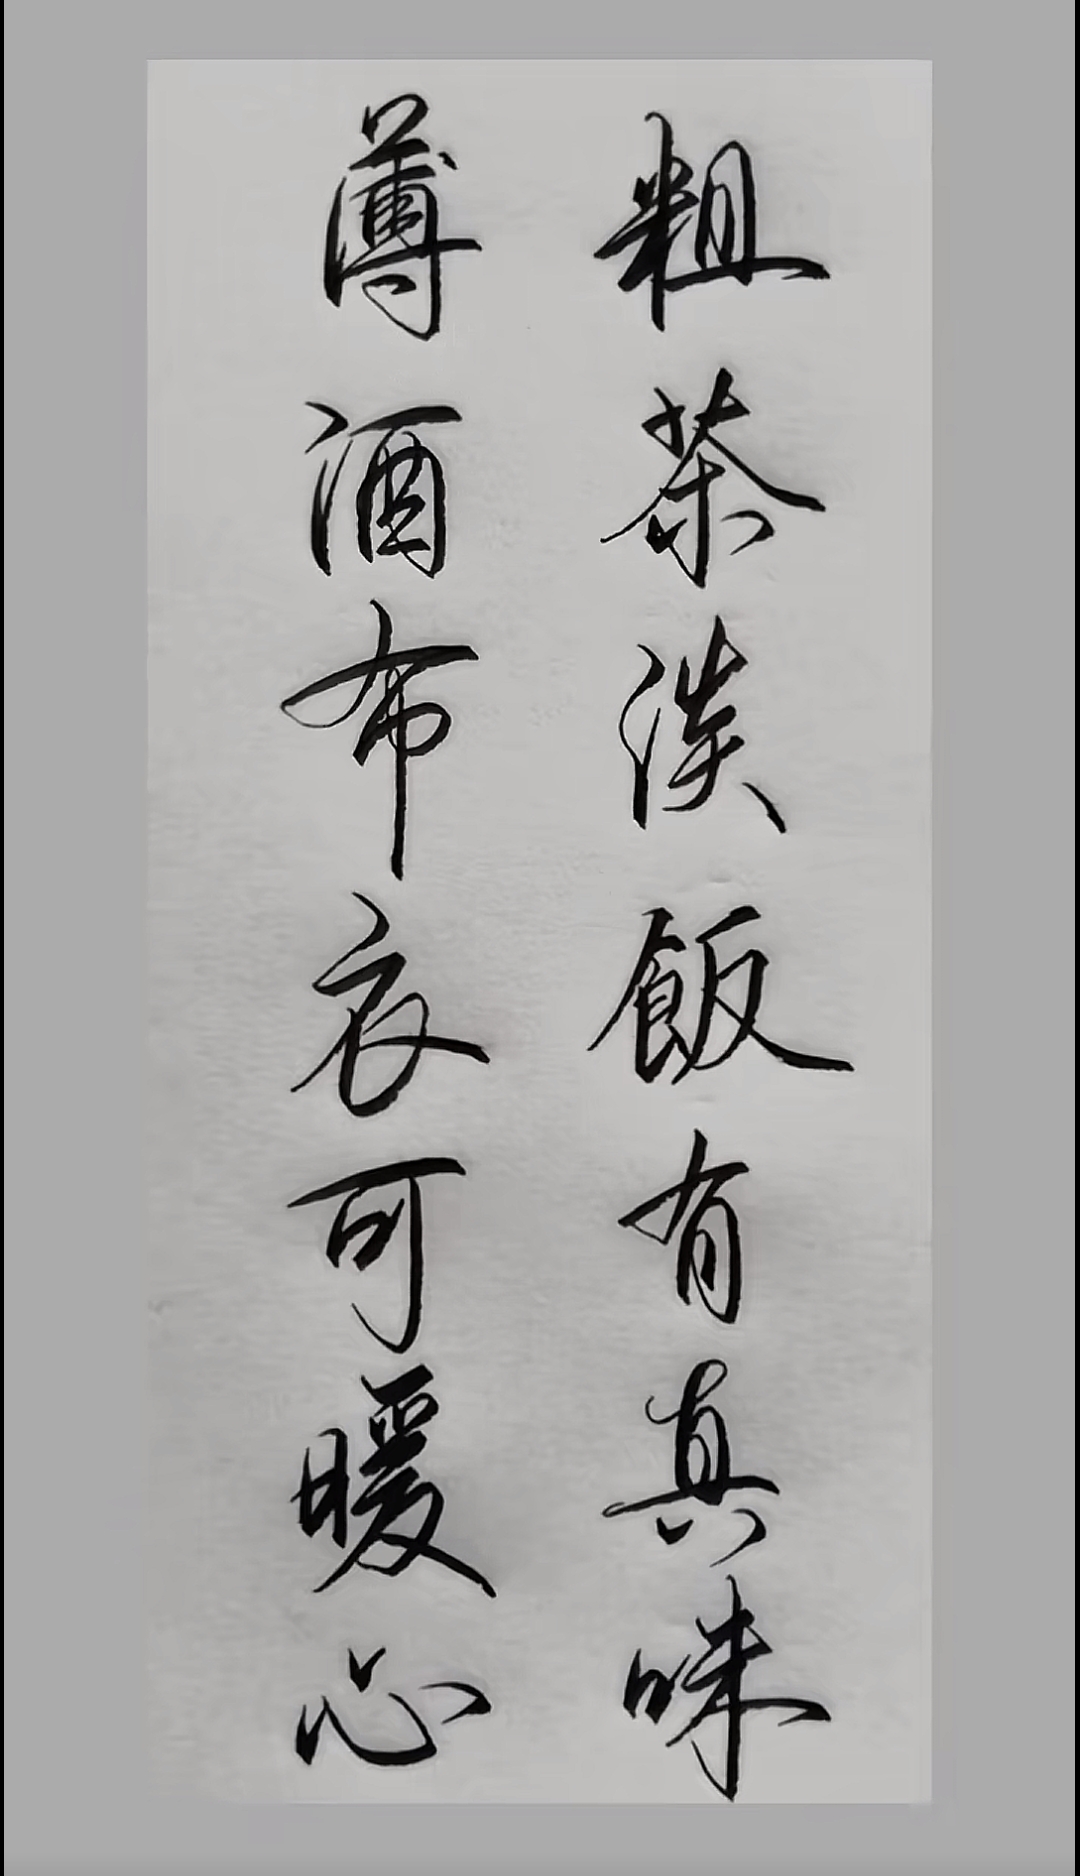 粗茶淡飯有真味
薄酒布衣可暖心